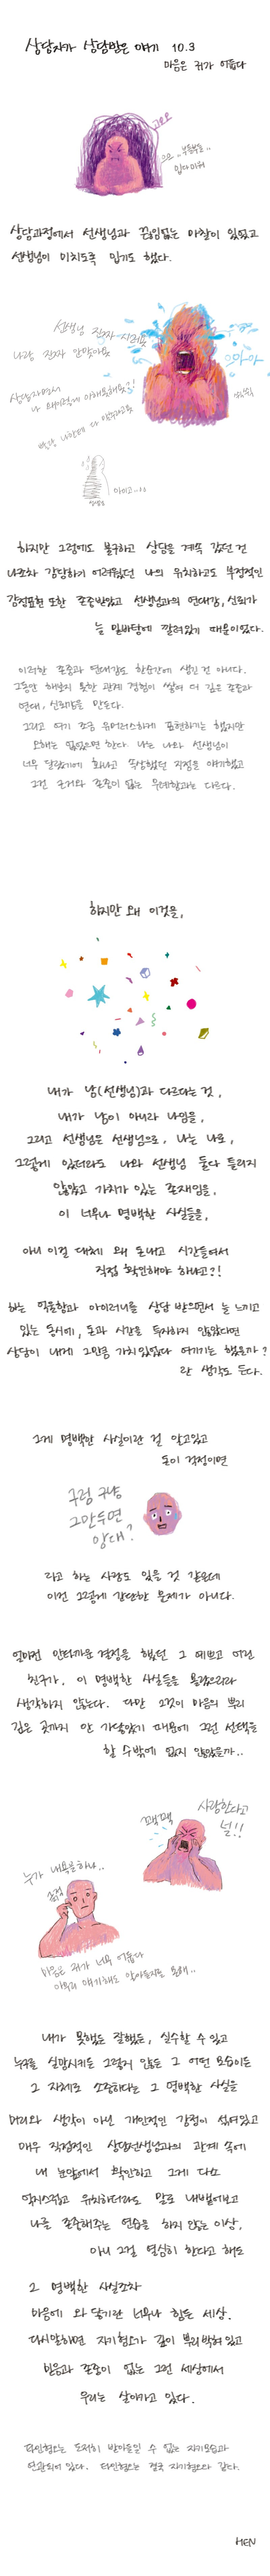 상담자가 상담받은 얘기 10.3
마음은 귀가 어둡다
고오오
부들부들..
밉다미워
상담과정에서 선생님과 끊임없는 마찰이 있었고
선생님이 미치도록 밉기도 했다.
선생님 진짜 싫어요
나랑 진짜 안맞아요
으아아
상담자면서
나 왜이렇게 이해못해요?!
아이고..
하지만 그럼에도 불구하고 상담을 계속 갔던 건
나조차 감당하기 어려웠던 나의 유치하고도 부정적인
감정표현 또한 존중받았고 선생님과의 연대감, 신뢰가
늘 밑바탕에 깔려있기 때문이었다.
이러한 존중과 연대감도 한순간에 생긴 건 아니다.
그동안 해보지 못한 관계 경험이 쌓여 더 깊은 존중과
연대, 신뢰감을 만든다.
그리고 여기 조금 유머러스하게 표현하기는 했지만
오해는 없었으면 한다. 나는 나와 선생님이
너무 달랐기에 화나고 속상했던 지점을 얘기했고
그건 근거와 존중이 없는 무례함과는 다르다.
하지만 왜 이것을,
내가 남(선생님)과 다르다는 것,
내가 남이 아니라 나임을,
그리고 선생님은 선생님으로, 나는 나로,
그렇게 있더라도 나와 선생님 둘다 틀리지
않았고 가치가 있는 존재임을,
이 너무나 명백한 사실들을,
아니 이걸 대체 왜 돈내고 시간들여서
직접 확인해야 하냐고?!
하는 억울함과 아이러니를 상담 받으면서 늘 느끼고
있는 동시에, 돈과 시간을 투자하지 않았다면
상담이 내게 그만큼 가치있었다 여기기는 했을까?
란 생각도 든다.
그게 명백한 사실이란 걸 알고있고
돈이 걱정이면
그럼 그냥
그만두면
안대?
라고 하는 사람도 있을 것 같은데
이건 그렇게 간단한 문제가 아니다.
얼마전 안타까운 결정을 했던 그 예쁘고 어린
친구가, 이 명백한 사실들을 몰랐으리라
생각하지 않는다. 다만 그것이 마음의 뿌리
깊은 곳까지 안 가닿았기 때문에 그런 선택을
할 수밖에 없지 않았을까..
사랑한다고
널!!
꽥꽥
누가 내욕을하나..
마음은 귀가 너무 어둡다
아무리 얘기해도 알아듣지를 못해..
내가 못했든 잘했든, 실수할 수 있고
누구를 실망시키든 그렇지 않든 그 어떤 모습이든
그 자체로 소중하다는 그 명백한 사실을
머리와 생각이 아닌 개인적인 감정이 섞여있고
매우 직접적인 상담선생님과의 관계 속에
내 눈앞에서 확인하고 그게 다소
억지스럽고 유치하더라도 말로 내뱉어보고
나를 존중해주는 연습을 하지 않는 이상,
아니 그걸 열심히 한다고 해도
그 명백한 사실조차
마음에 와 닿기란 너무나 힘든 세상.
다시말하면 자기혐오가 깊이 뿌리 박혀 있고
믿음과 존중이 없는 그런 세상에서
우리는 살아가고 있다.
타인혐오는 도저히 받아들일 수 없는 자기모습과
연관되어 있다. 타인혐오는 결국 자기혐오와 같다.
HEN